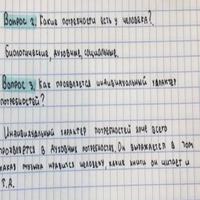 Вопрос 2. Какие потребности есть у человека?
Биологические, духовные, социальные.
Вопрос 3. Как проявляется индивидуальный характер
потребностей?
Индивидуальный характер потребностей ярче всего
проявляется в духовных потребностях. Он выражается в том
какая музыка нравится человеку, какие книги он читает и
т.д.